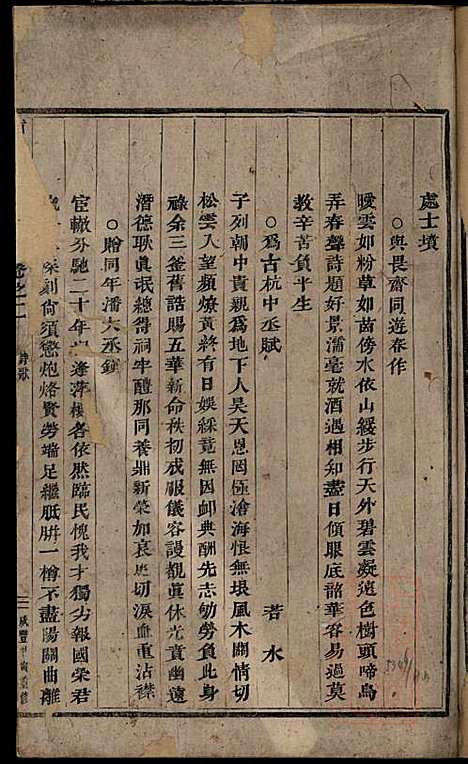 處士墳
○與畏齋同遊春作
曖雲如粉草如茵傍水依山緩步行天外碧雲凝遠色樹頭啼鳥
弄春聲詩題好景濡毫就酒遇相知盡日傾眼底韶華容易過莫
教辛苦負半生
○爲古杭中丞賦 若水
子列朝中貴親爲地下人昊天恩罔極滄海恨無垠風木關情切
松雲入望頻燎黃終有日娛綵竟無因卹典酬先志劬勞負此身
祿余三釜舊誥賜五華新命秩初成服儀容謾覩眞休光賁幽遠
潛德耿眞珉總得祠牢醴那同養鼎新榮加哀思切淚血重沾襟
○贈同年潘大丞錦
宦轍分馳二十年 逢萍梗各依然臨民愧我才獨劣報國榮君
深刻尚須懲炮烙賢勞端足繼胝胼一樽不盡陽關曲離
卷之二 詩歌 咸豐甲寅重修